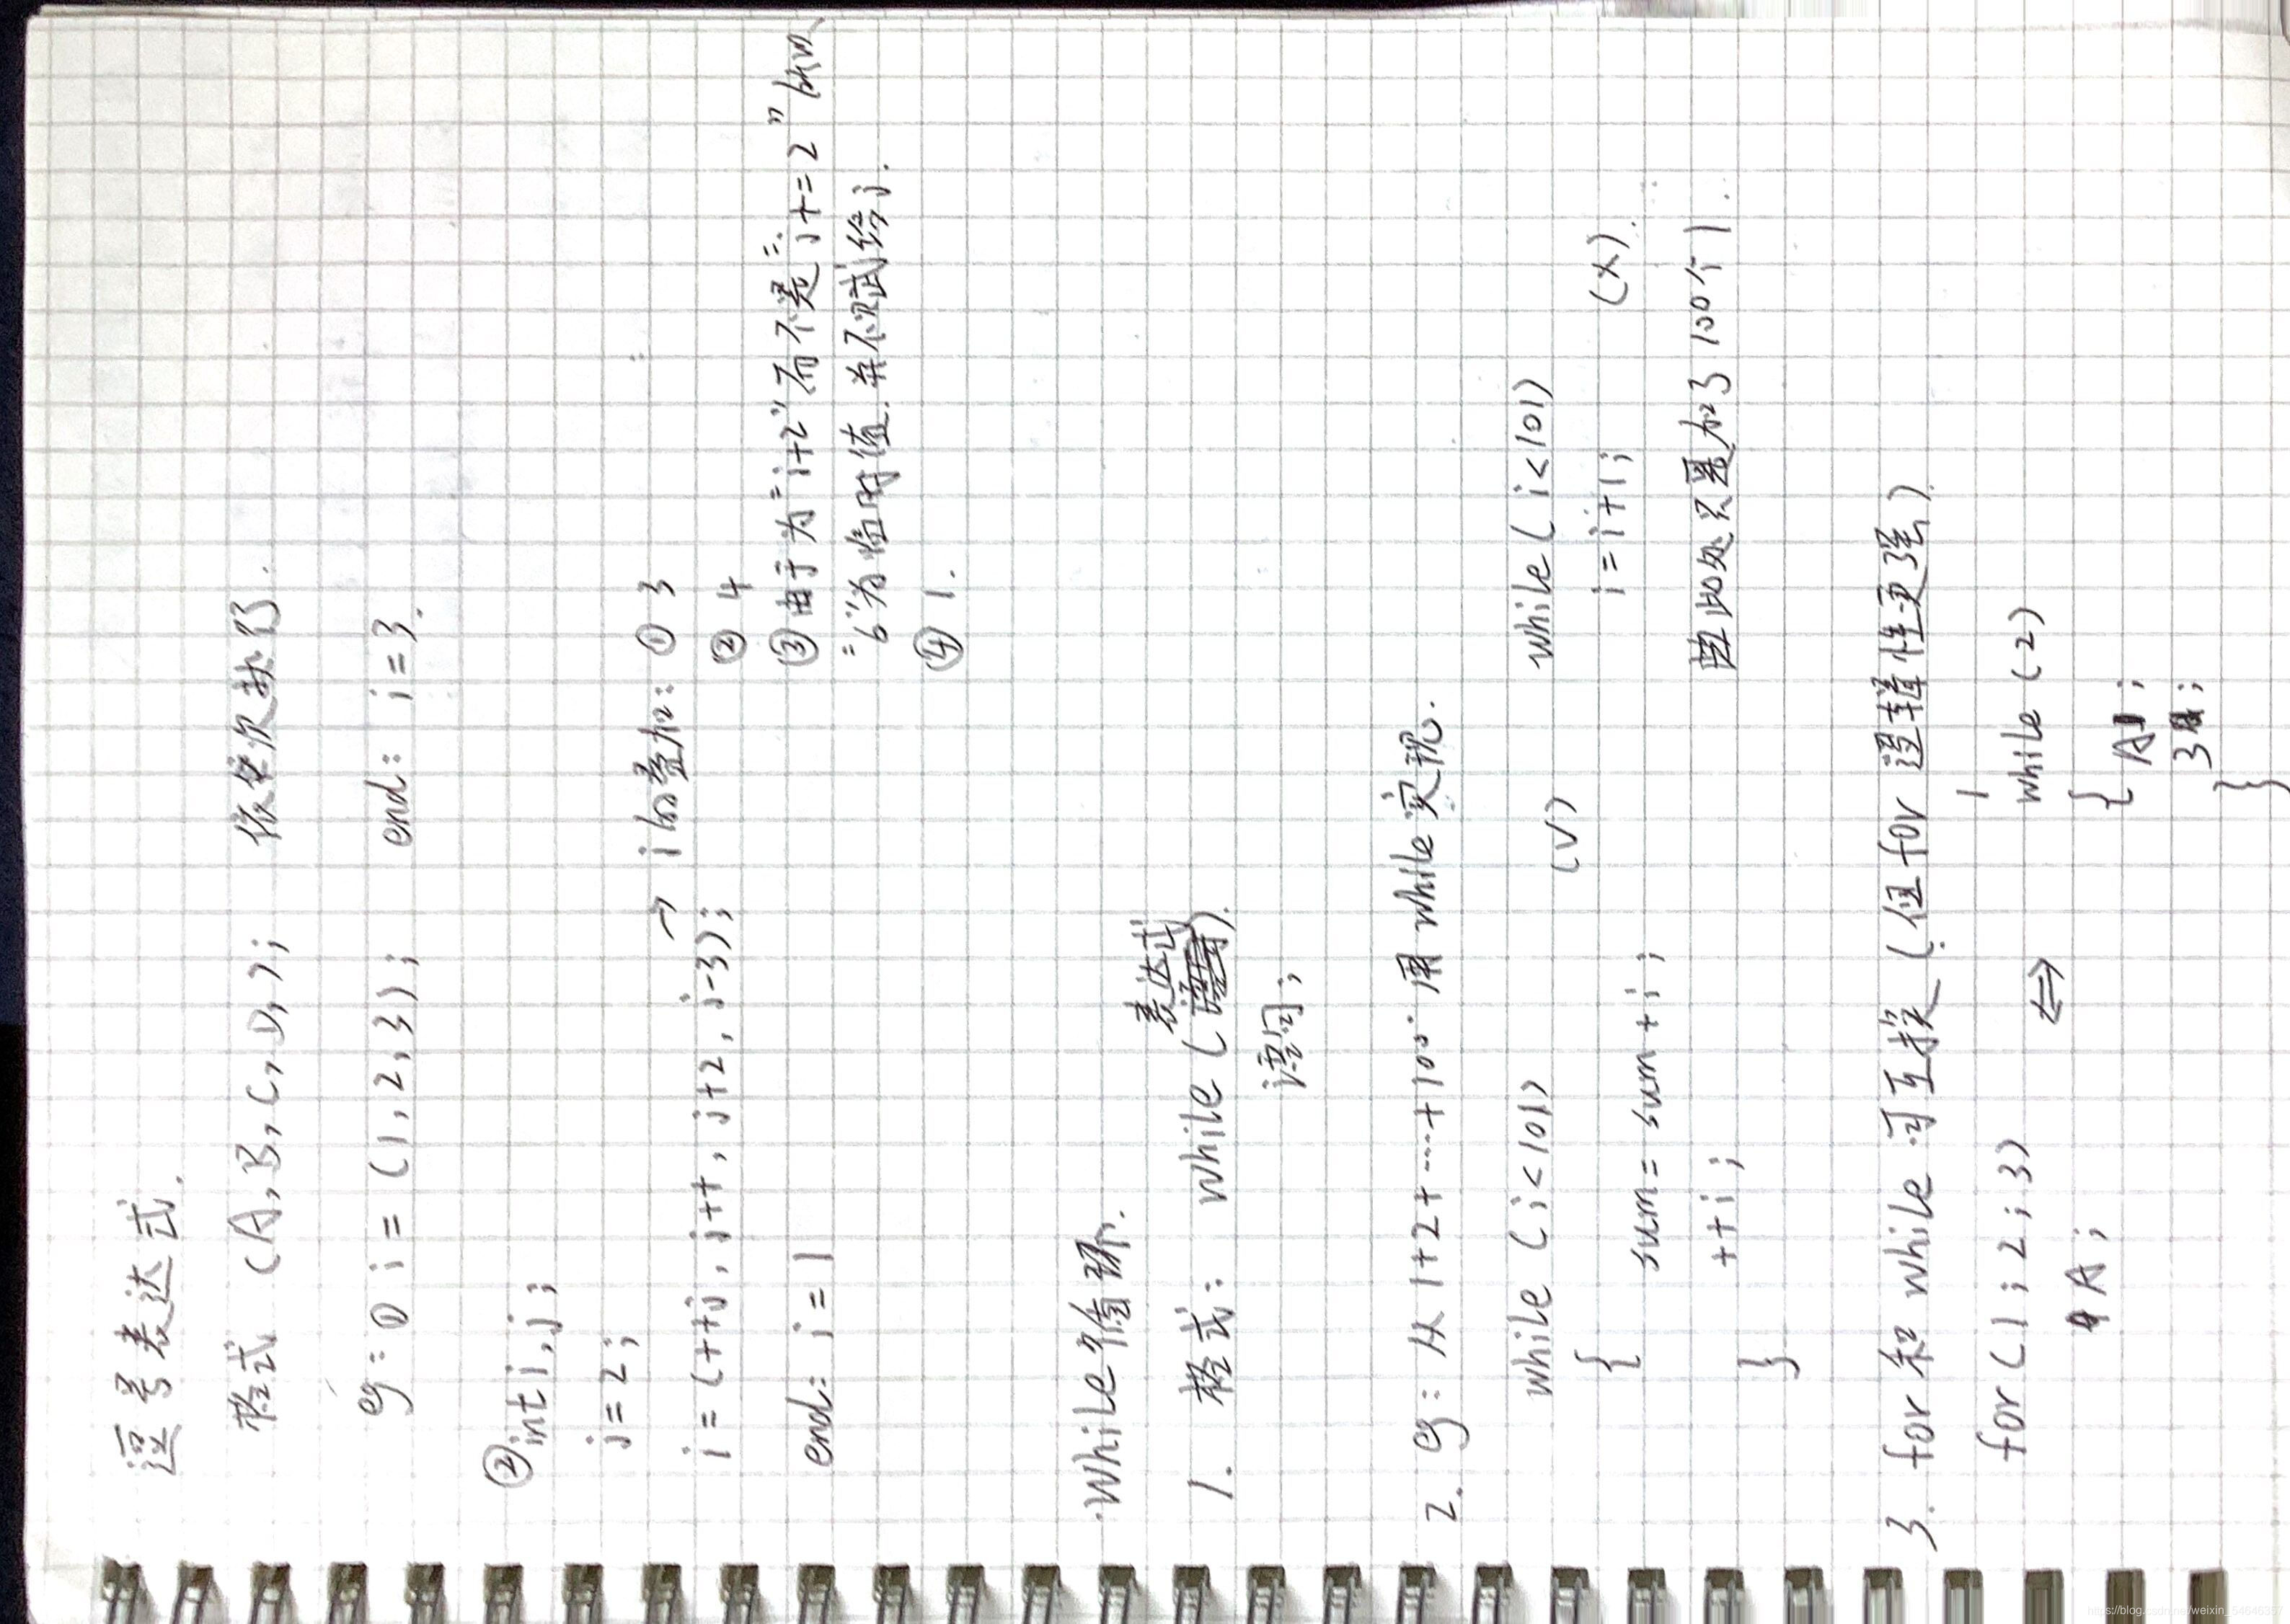 逗号表达式.
格式 (A,B,C,D,); 依次执行.
eg: ① i = (1,2,3); end: i=3.
② int i,j;
j=2; → i的叠加: ① 3
i = (++j, j++, j+2, j-3); ② 4
③ 由于为"j+2"而不是"j+=2"
end: i=1 "6"为临时值.并不赋给j.
④ 1.
·While循环.
1. 格式: while (表达式).
语句;
2. eg: 从1+2+....+100 用while实现.
while (i<101) (√) while (i<101)
{ i=i+1; (×).
sum = sum+i;
++i; 此处只是加了100个1.
}
3. for和while可互换 (但for逻辑性更强)
for (1;2;3) ⇔ 1
while (2)
A; { A;
3;
}
https://blog.csdn.net/weixin_54646357